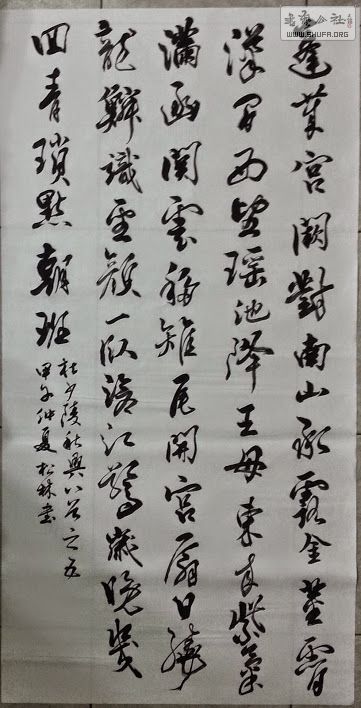 蓬萊宮闕對南山承露金莖霄
漢間西望瑤池降王母東來紫氣
滿函關雲移雉尾開宮扇日繞
龍鱗識聖顏一臥滄江驚歲晚幾
回青瑣點朝班
杜少陵秋興八首之五
甲午仲夏松林書
書藝公社
WWW.SHUFA.ORG